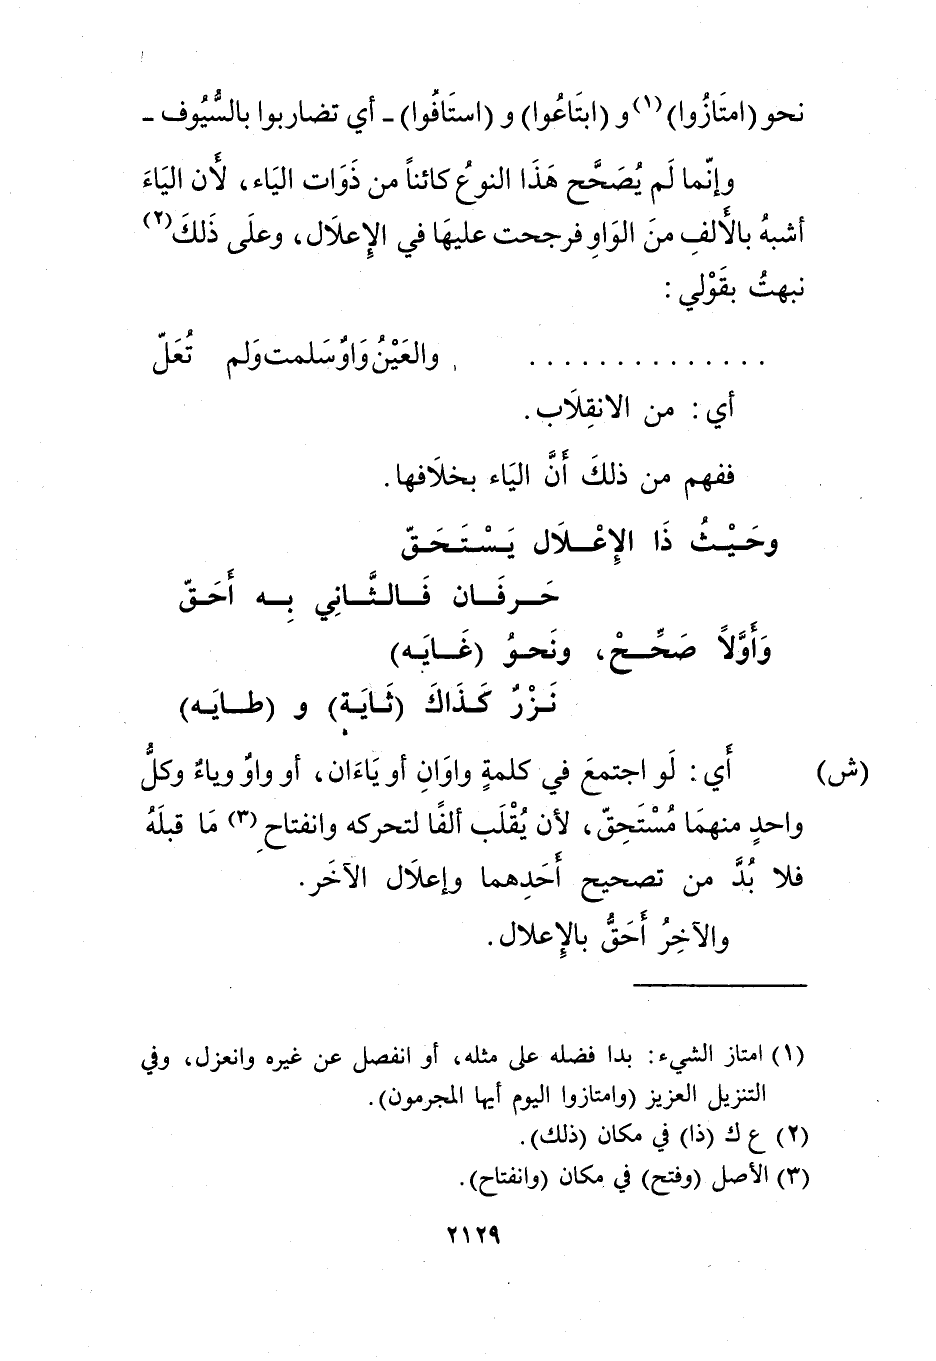 نحو (امتَازُوا)(١) و (ابتَاعُوا) و (استَافُوا) ـ أي تضاربوا بالسُّيُوف ـ
وإنّما لَم يُصَحَّح هَذَا النوعُ كائناً من ذَوَات اليَاء، لأَن اليَاءَ
أشبهُ بالأَلفِ منَ الوَاوِ فرجحت عليهَا في الإِعلَال، وعلَى ذَلكَ(٢)
نبهتُ بقَوْلي :
. . . . . . . . . . . . . . والعَيْنُ وَاوٌ سَلمت وَلم تُعَلّ
أي : من الانقِلَاب .
ففهم من ذلكَ أَنَّ اليَاء بخلَافها .
وحَيْثُ ذَا الإِعْلَال يَسْتَحَقّ
حَرفَان فَالثَّانِي بِه أَحَقّ
وَأَوَّلاً صَحِّحْ، ونَحوُ (غَايَه)
نَزْرٌ كَذَاكَ (ثَايَة) و (طايَه)
(ش) أَي : لَو اجتمعَ في كلمةٍ واوَانِ أو يَاءَان، أو واوٌ وياءٌ وكلُّ
واحدٍ منهمَا مُسْتَحِقّ، لأن يُقْلَب ألفًا لتحركه وانفتاحِ(٣) مَا قبلَهُ
فلا بُدَّ من تصحيح أَحَدِهما وإعلَال الآخَر .
والآخِرُ أَحَقُّ بالإِعلال .
(١) امتاز الشيء : بدا فضله على مثله، أو انفصل عن غيره وانعزل، وفي
التنزيل العزيز (وامتازوا اليوم أيها المجرمون) .
(٢) ع ك (ذا) في مكان (ذلك) .
(٣) الأصل (وفتح) في مكان (وانفتاح) .
٢١٢٩